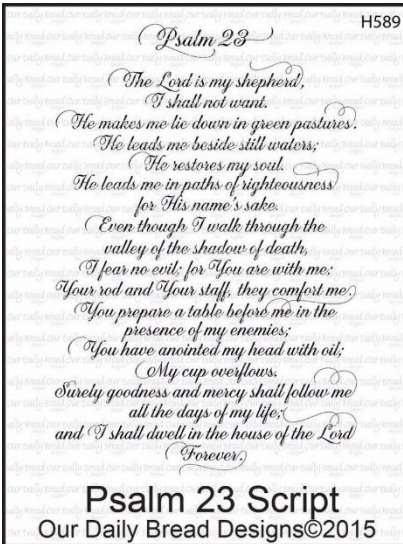 H589
Psalm 23
The Lord is my shepherd,
I shall not want.
He makes me lie down in green pastures.
He leads me beside still waters;
He restores my soul.
He leads me in paths of righteousness
for His name's sake.
Even though I walk through the
valley of the shadow of death,
I fear no evil; for You are with me;
Your rod and Your staff, they comfort me.
You prepare a table before me in the
presence of my enemies;
You have anointed my head with oil;
My cup overflows.
Surely goodness and mercy shall follow me
all the days of my life;
and I shall dwell in the house of the Lord
Forever.
Psalm 23 Script
Our Daily Bread Designs©2015